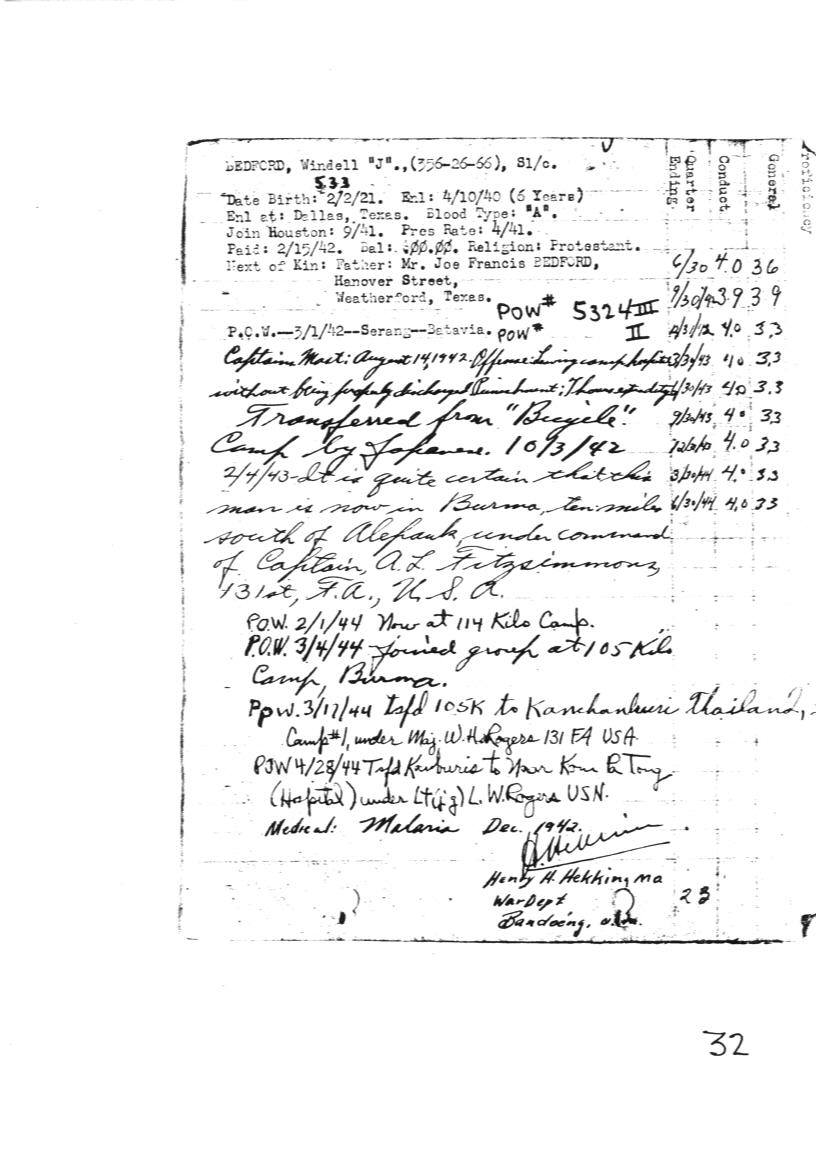 BEDFORD, Windell "J"., (356-26-66), S1/c.
533
Date Birth: 2/2/21. Enl: 4/10/40 (6 Years)
Enl at: Dallas, Texas. Blood Type: "A".
Join Houston: 9/41. Pres Rate: 4/41.
Paid: 2/15/42. Bal: .00.00. Religion: Protestant.
Next of Kin: Father: Mr. Joe Francis BEDFORD,
Hanover Street,
Weatherford, Texas.
POW# 5324 III
P.O.W.--3/1/42--Serang--Batavia. POW# II
Captains Mast: August 14, 1942. Offense: Leaving camp hospital
without being properly discharged Punishment: 7 hours extra duty
Transferred from "Bicycle"
Camp by Japanese. 10/3/42
2/4/43-It is quite certain that this
man is now in Burma, ten miles
south of Alepauk, under command
of Captain, A. L. Fitzsimmons,
131st, F.A., U. S. A.
P.O.W. 2/1/44 Now at 114 Kilo Camp.
P.O.W. 3/4/44 - Joined group at 105 Kilo
Camp, Burma.
POW. 3/17/44 Tsfd 105K to Kanchanburi Thailand,
Camp #1, under Maj. W. H. Rogers 131 FA USA
POW 4/28/44 Tsfd Kanburis to Near
(Hospital) under Lt (jg) L. W. Rogers USN.
Medical: Malaria Dec. 1942.
Henry H. Hekking MD
War Dept
Bandoeng,
Quarter Ending Conduct General Proficiency
6/30 4.0 3 6
9/30/42 3.9 3 9
12/31/42 4.0 3.3
3/31/43 4.0 3.3
6/30/43 4.0 3.3
9/30/43 4.0 3.3
4.0 3.3
3/30/44 4.0 3.3
6/30/44 4.0 3.3
2 3
32